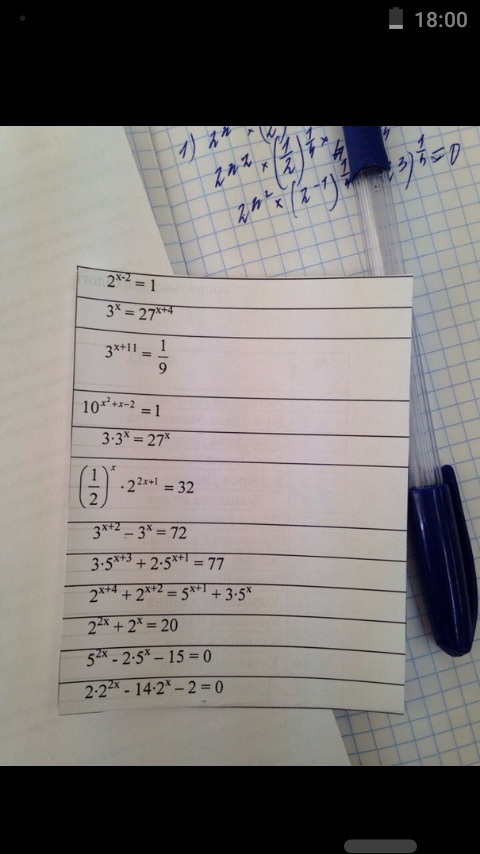 18:00
2^{x-2} = 1
3^x = 27^{x+4}
3^{x+11} = \frac{1}{9}
10^{x^2+x-2} = 1
3·3^x = 27^x
\left(\frac{1}{2}\right)^x · 2^{2x+1} = 32
3^{x+2} – 3^x = 72
3·5^{x+3} + 2·5^{x+1} = 77
2^{x+4} + 2^{x+2} = 5^{x+1} + 3·5^x
2^{2x} + 2^x = 20
5^{2x} - 2·5^x – 15 = 0
2·2^{2x} - 14·2^x – 2 = 0